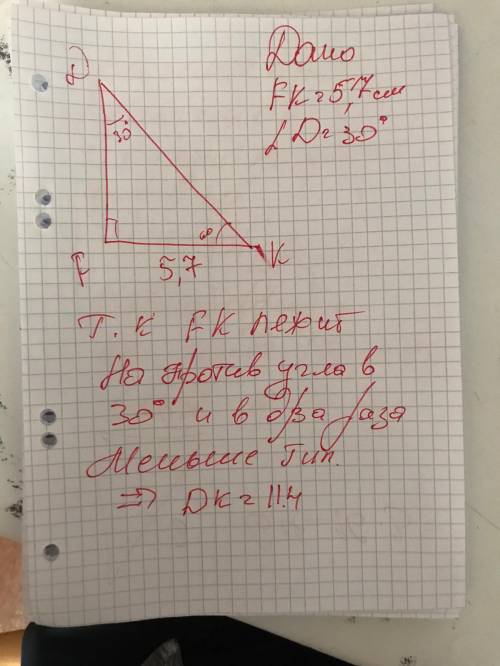 Дано
FK = 5,7 см
∠D = 30°
D
30°
60
F
5,7
K
Т. к FK лежит
На против угла в
30° и в два раза
Меньше гип.
⇒ DK = 11.4